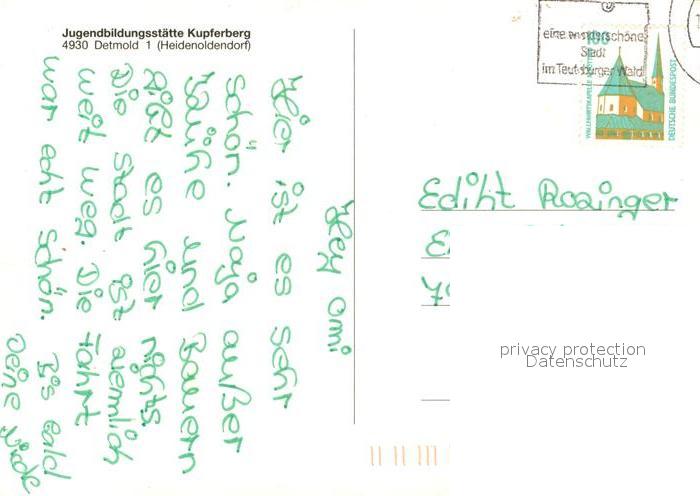 Jugendbildungsstätte Kupferberg
4930 Detmold 1 (Heidenoldendorf)
Hey Omi
Hier ist es sehr
schön. Naja außer
Kühe und Bauern
gibt es hier nichts.
Die Stadt ist ziemlich
weit weg. Die Fahrt
war echt schön.
Bis bald
Deine
eine wunderschöne
Stadt
im Teutoburger Wald
100
DEUTSCHE BUNDESPOST
Ediht Rosinger
privacy protection
Datenschutz